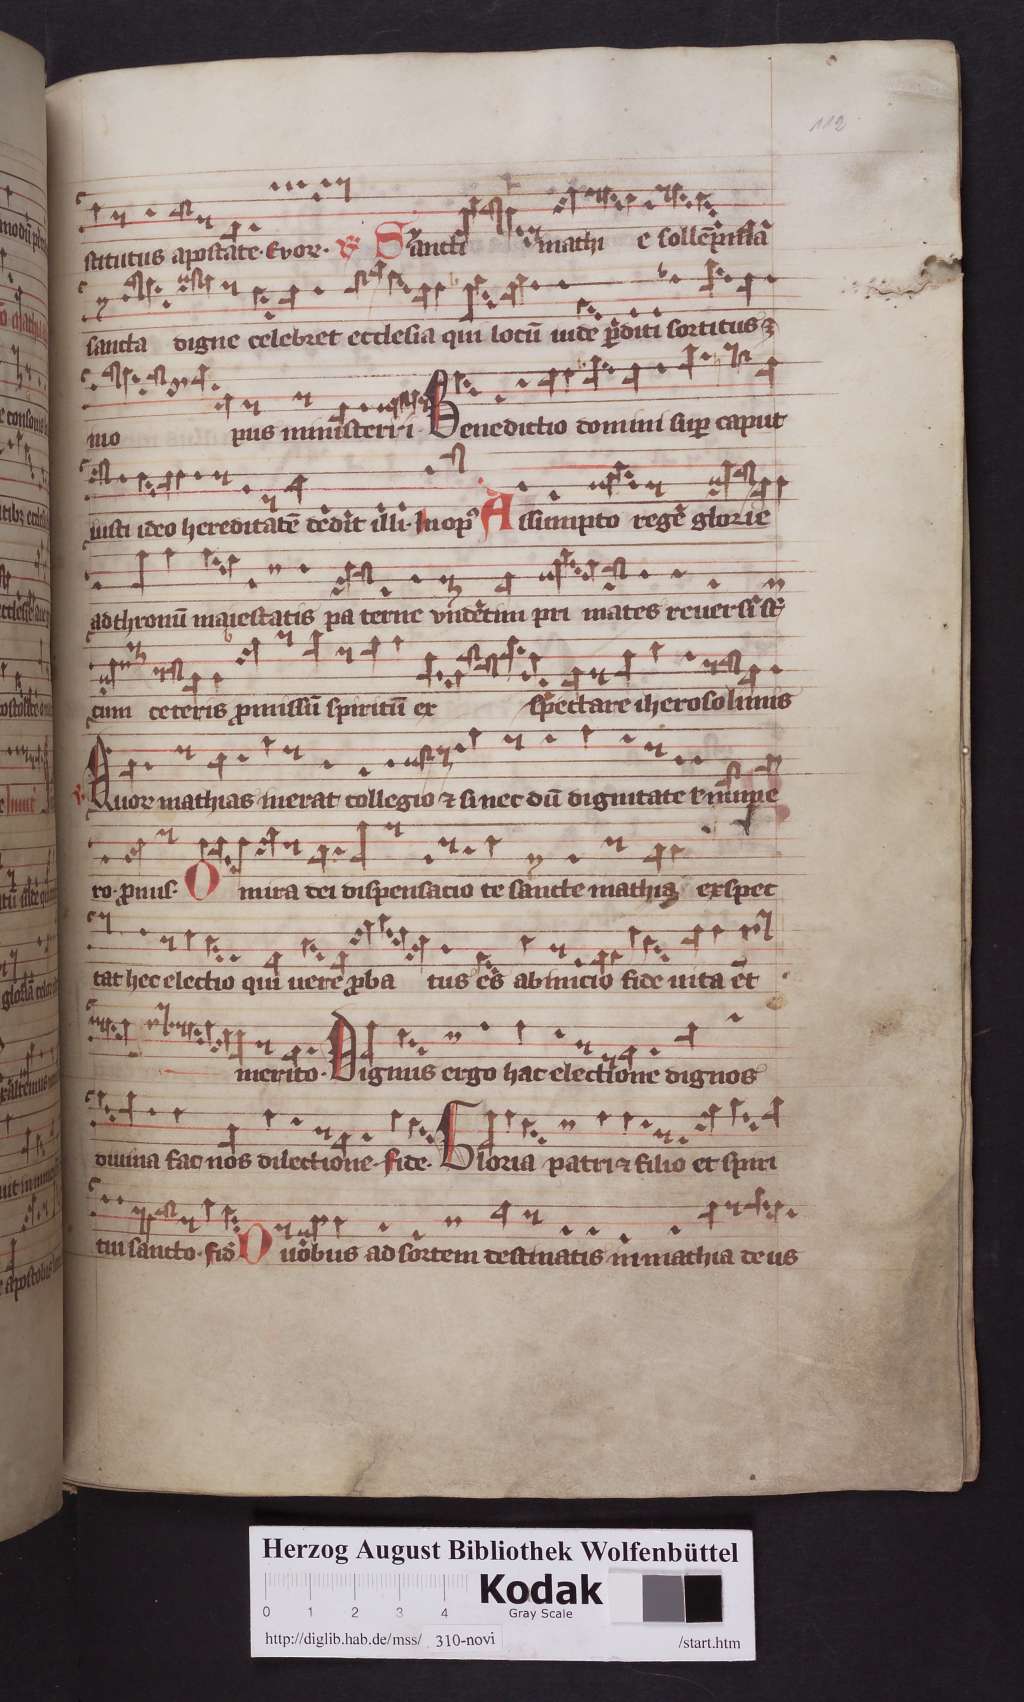 112
stitutus apostate. Euor. ℟ Sancti mathi e sollēpnia
sancta digne celebret ecclesia qui locū iude ꝑditi sortitus ⁊
mo pus ministerii Benedictio domini suꝑ caput
iusti ideo hereditatē dedit illi. In op Assumpto regē glorie
ad thronū maiestatis pa terne vndetim pri mates reuersi st
cum ceteris ꝓmissū spiritū ex spectare iherosolimis
Quor mathias inerat collegio ⁊ si nec dū dignitate
ro. ꝓnus. O mira dei dispensacio te sancte mathia exspec
tat hec electio qui vere ꝓba tus es ab inicio fide uita et
merito. Dignus ergo hac electione dignos
diuina fac nos dilectione. fide. Gloria patri ⁊ filio et spiri
tui sancto. fid Duobus ad sortem destinatis in mathia deus
Herzog August Bibliothek Wolfenbüttel
Kodak
Gray Scale
0 1 2 3 4
http://diglib.hab.de/mss/ 310-novi /start.htm